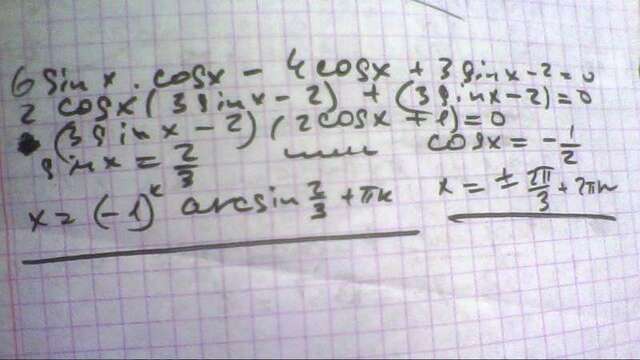 6 sin x · cos x − 4 cos x + 3 sin x − 2 = 0
2 cos x (3 sin x − 2) + (3 sin x − 2) = 0
(3 sin x − 2) (2 cos x + 1) = 0
sin x = 2/3    cos x = − 1/2
x = (−1)^k arcsin 2/3 + πk    x = ± 2π/3 + 2πn